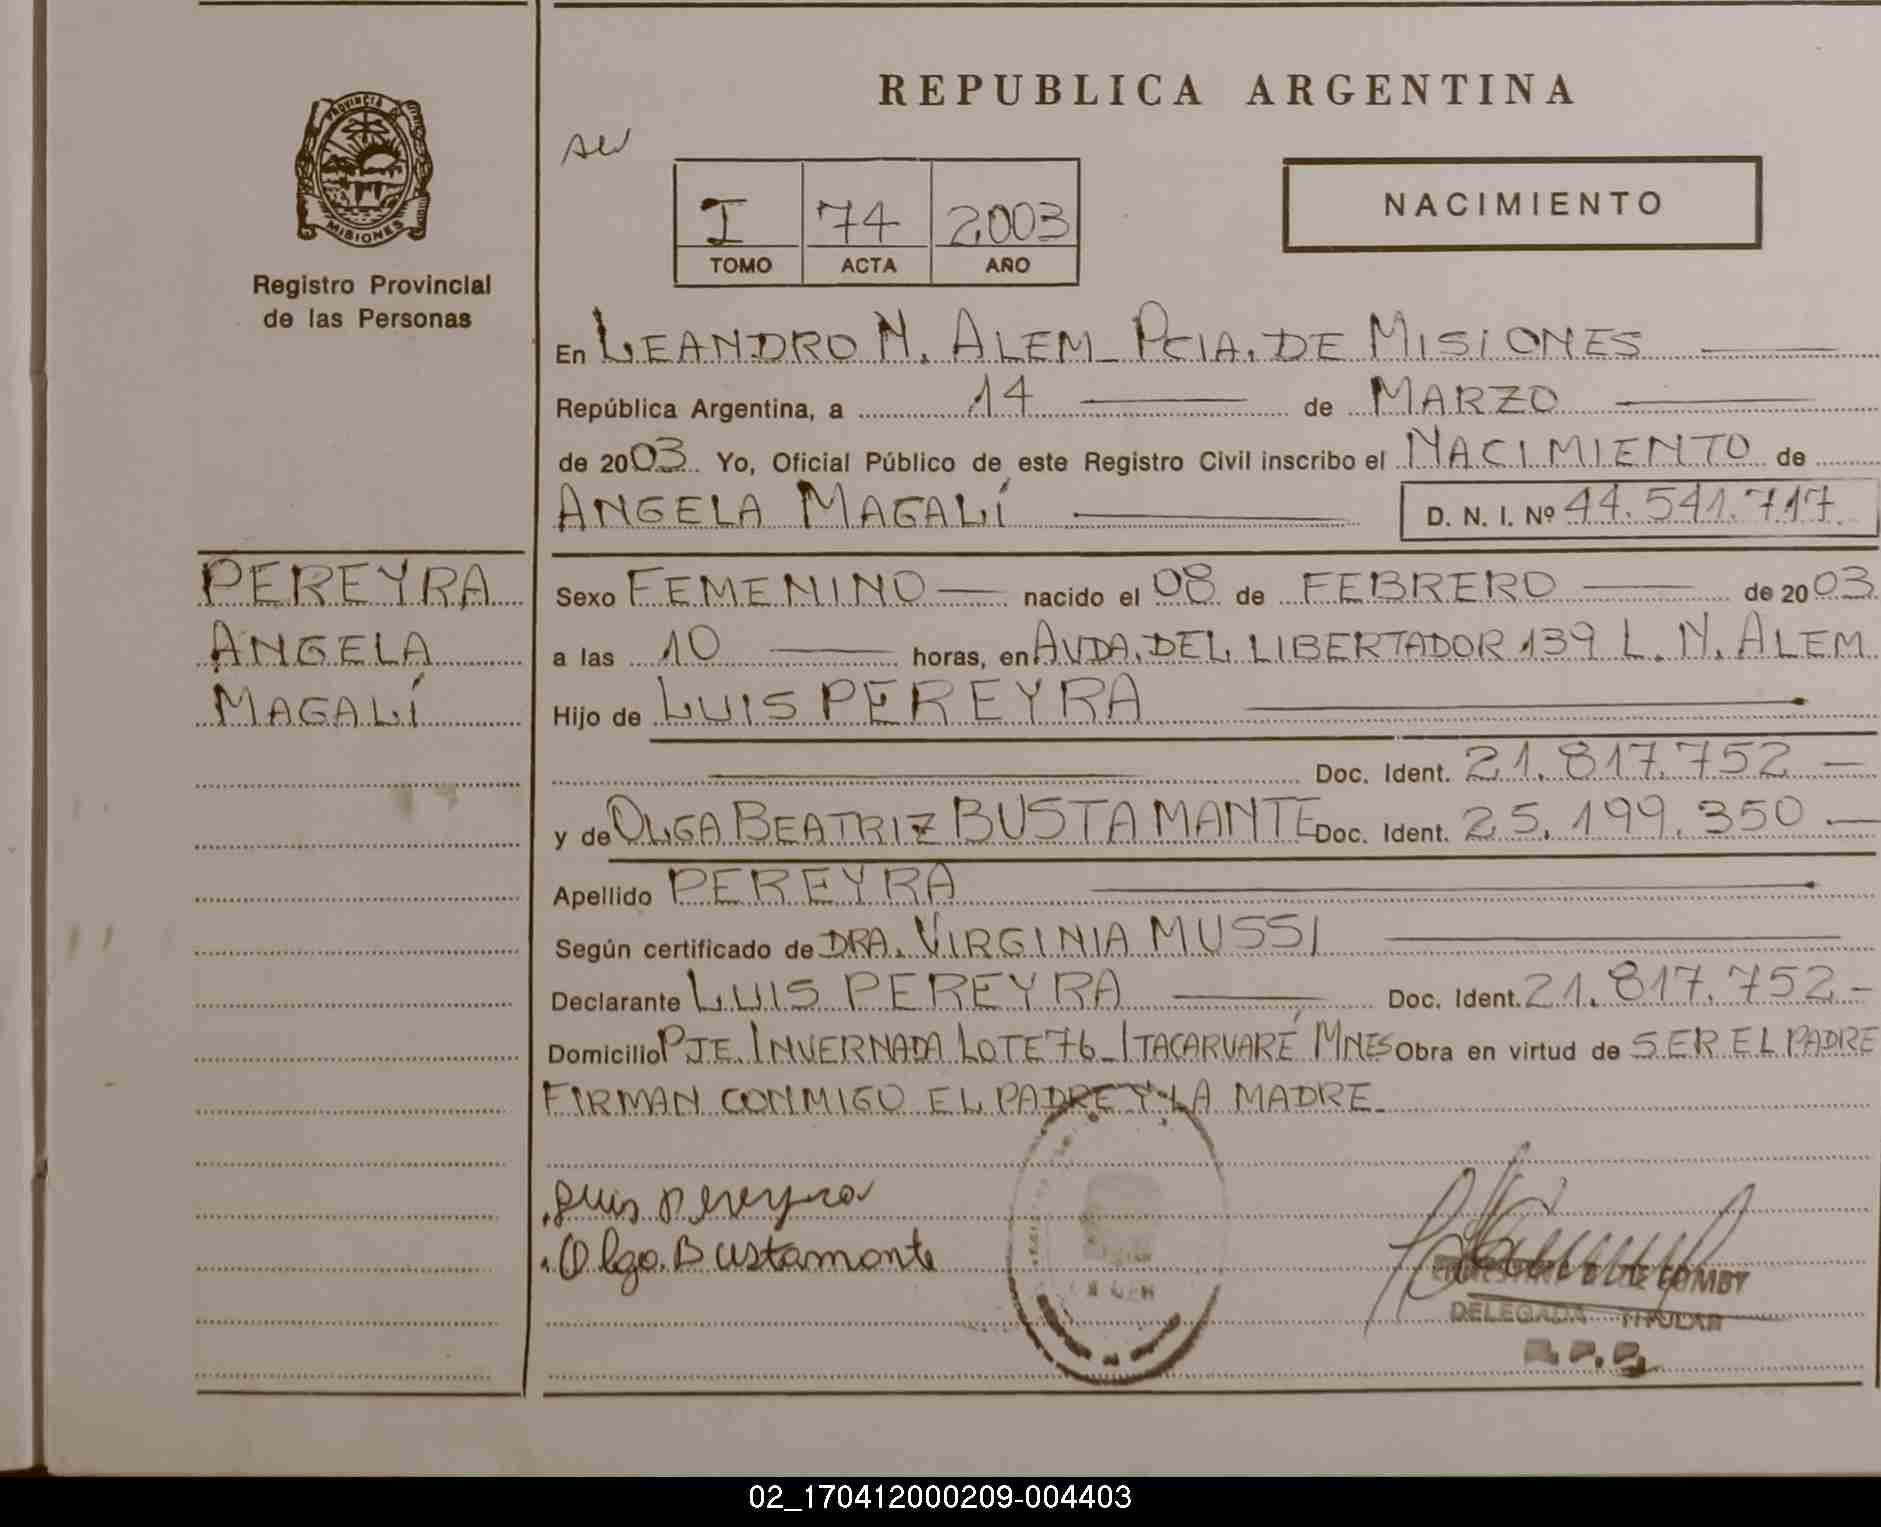 REPUBLICA ARGENTINA
PROVINCIA DE
MISIONES
Registro Provincial
de las Personas
I 74 2003
TOMO ACTA AÑO
NACIMIENTO
En LEANDRO N. ALEM_ PCIA. DE MISIONES
República Argentina, a 14 de MARZO
de 2003 Yo, Oficial Público de este Registro Civil inscribo el NACIMIENTO de
ANGELA MAGALÍ D. N. I. Nº 44.541.717
PEREYRA
ANGELA
MAGALÍ
Sexo FEMENINO nacido el 08 de FEBRERO de 2003
a las 10 horas, en AVDA. DEL LIBERTADOR 139 L. N. ALEM
Hijo de LUIS PEREYRA
Doc. Ident. 21.817.752
y de OLGA BEATRIZ BUSTAMANTE Doc. Ident. 25.199.350
Apellido PEREYRA
Según certificado de DRA. VIRGINIA MUSSI
Declarante LUIS PEREYRA Doc. Ident. 21.817.752
Domicilio PJE. INVERNADA LOTE 76_ ITACARUARÉ MNES Obra en virtud de SER EL PADRE
FIRMAN CONMIGO EL PADRE Y LA MADRE
Luis pereyra
Olga Bustamante
DELEGADA TITULAR
02_170412000209-004403